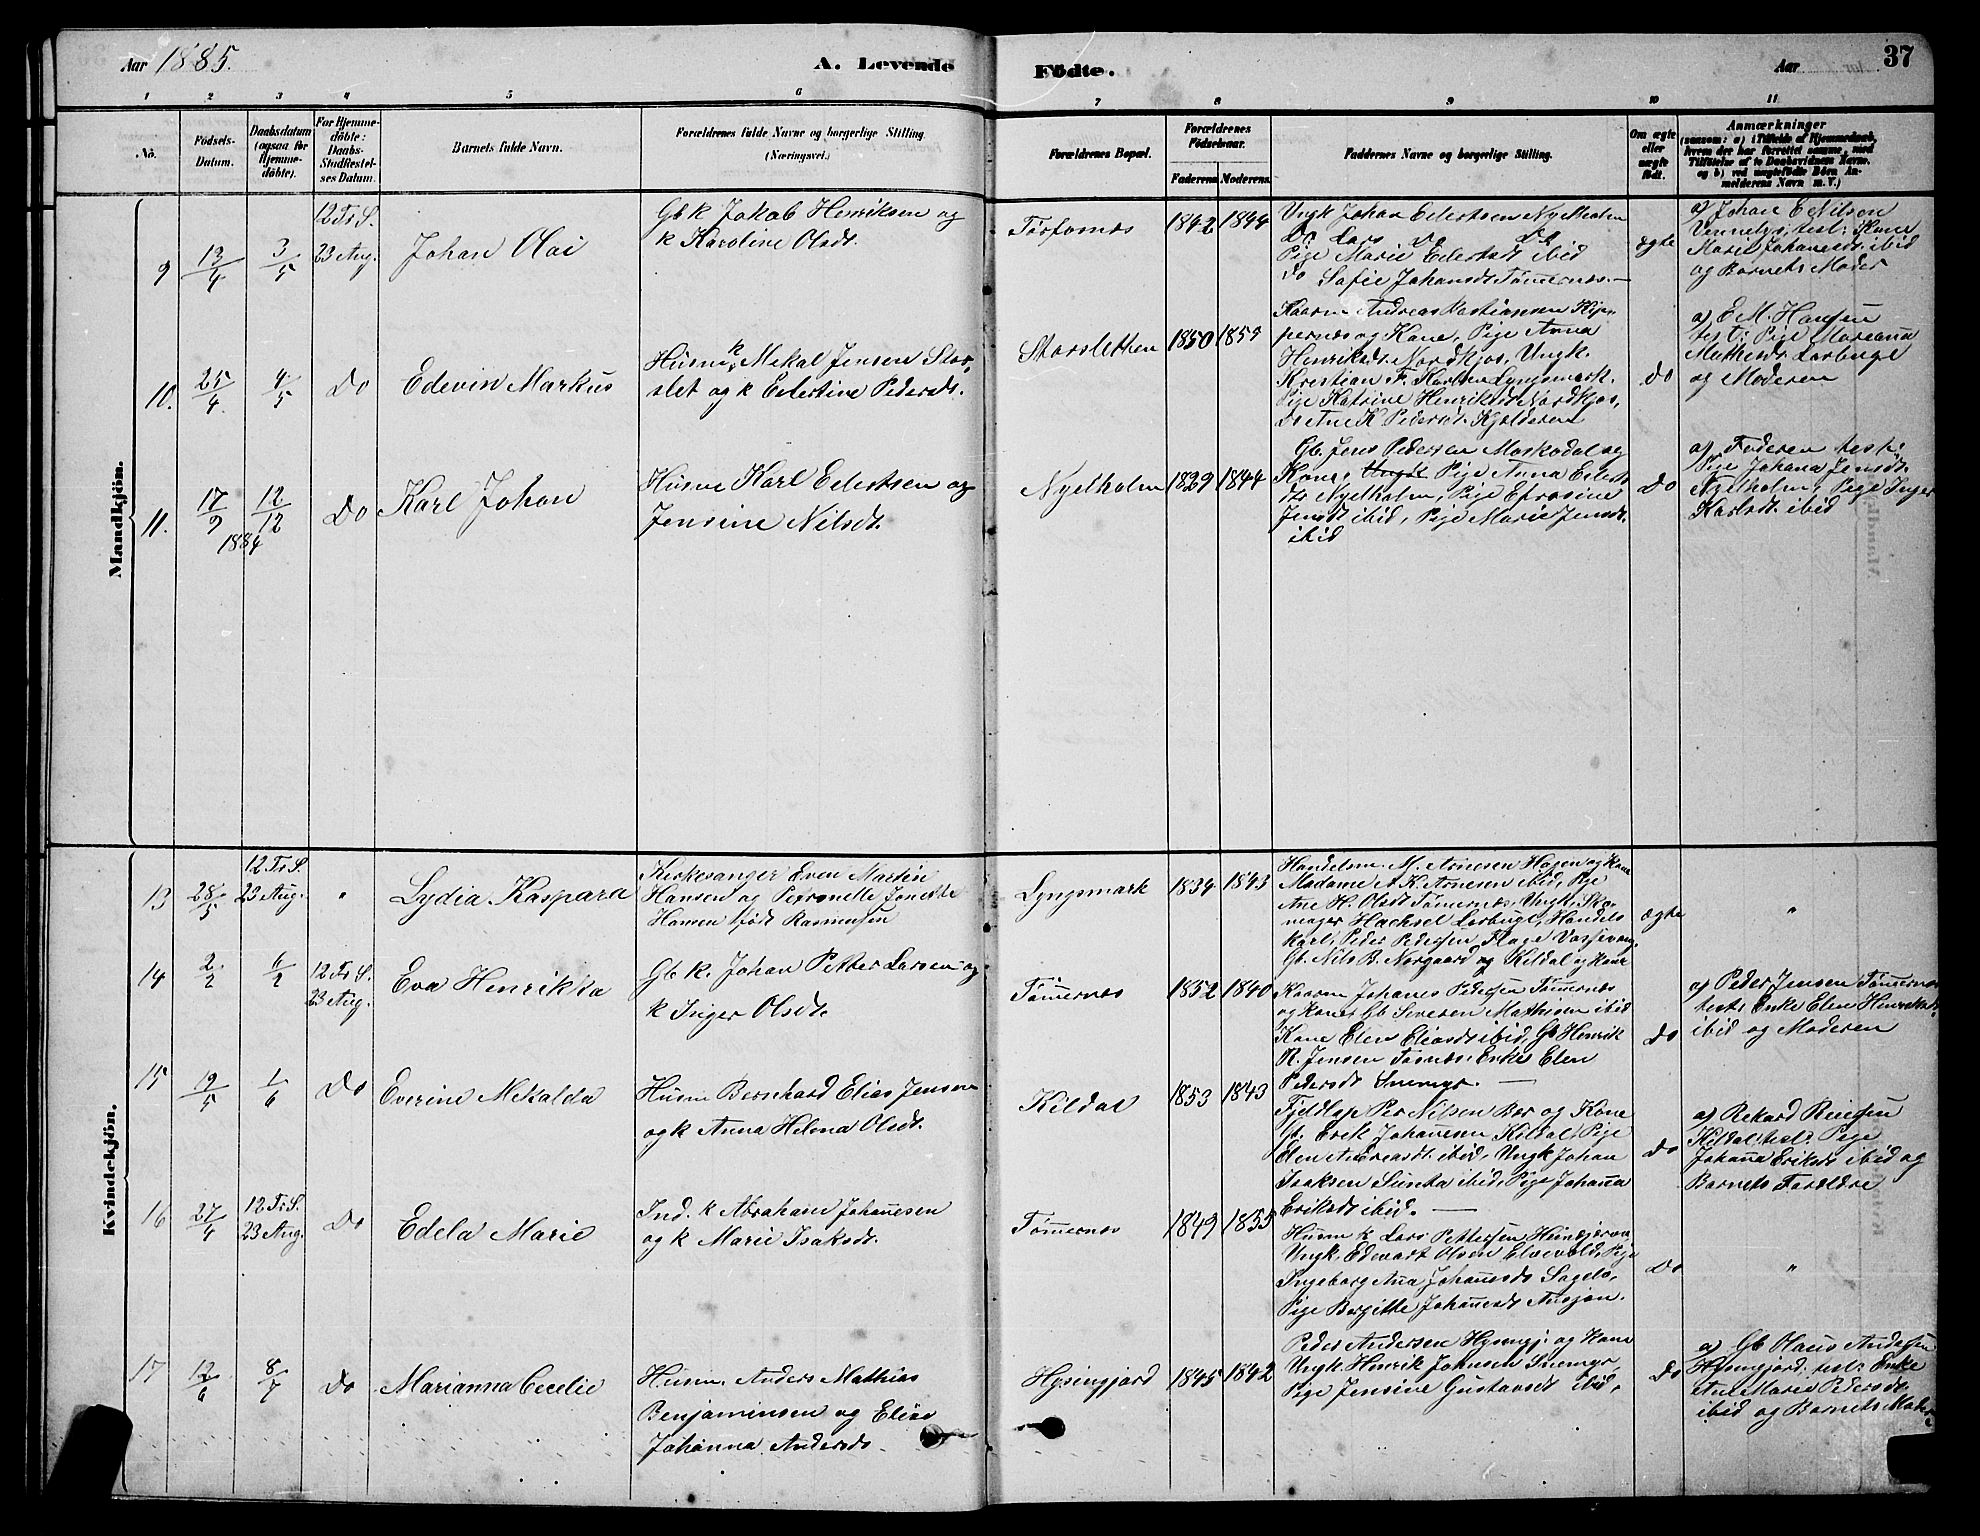 Aar 1885.
A. Levende
Födte.
Aar
37
1 2 3 4 5 6 7 8 9 10 11
No.
Födsels-
Datum.
Daabsdatum
(ogsaa for
Hjemme-
döbte).
For Hjemme-
döbte:
Daabs-
Stadfæstel-
ses Datum.
Barnets fulde Navn.
Forældrenes fulde Navne og borgerlige Stilling.
(Næringsvei.)
Forældrenes Bopæl.
Forældrenes
Födselsaar.
Faderens
Moderens.
Faddernes Navne og borgerlige Stilling.
Om ægte
eller
uægte
födt.
Anmærkninger
(saasom: a) i Tilfælde af Hjemmedaab,
hvem der har forrettet samme, med
Tilföielse af to Daabsvidners Navne,
og b) ved uægtefödte Börn An-
melderens Navn m. V.)
Mandkjön.
9
13/4
3/5
12 Tr. S.
23 Aug.
Johan Olai
Gb k Jakob Henriksen og
k Karoline Olsdt.
1842
1844
Ungk Johan Eilertsen Nyelholm
Do Lars Do Do
Pige Marie Eilertsdt ibid
Do Sofie Johansdt Tømernæs.
ægte
a) Johan E. Nilsen
test: Kone
Marie Johanesdt ibid
og Barnets Moder
10.
25/4
4/5
Do
Edevin Markus
Husm. k Mekal Jensen Stor-
slet og k Eilertine Pedersdt.
Storsletten
1850
1855
Andreas Bastiansen Kip-
pernæs og Kone, Pige Anna
Henriksdt. Nordkjos, Ungk.
Kristian F. Karlsen Lyngsmark.
Pige Katrine Henriksdt Nordkjos,
Do Ane K Pedersdt. Kjelderen
Do
a) E. M. Hansen
test: Pige Mareana
Mathisdt. Larbugt
og Moderen
11.
17/9
12/12
1884
Do
Karl Johan
Husm Karl Eilertsen og
Jensine Nilsdt.
Nyelholm
1839
1844
Gb. Jens Pedersen Moskodal og
Kone, Ungk Pige Anna Eilerts
dt Nyelholm, Pige Efrosine
Jensdt ibid, Pige Marie Jensdt.
ibid
Do
a) Faderen test:
Pige Johana Jensdt.
Nyelholm, Pige Inger
Karlsdt. ibid
Kvindekjön.
13
28/5
12 Tr. S.
23 Aug.
"
Lydia Kaspara
Kirkesanger Even Martin
Hansen og Petronelle Jonette
Hansen född Rasmussen
Lyngsmark
1834
1843
Handelsm. M. Arnesen Hagen og Kone
Madame A. K. Arnesen ibid, Pige
Ane H. Olsdt Tømernæs, Ungk. Ska-
nager Hachsel Larbugt, Handels
karl, Peder Pedersen
Gb. Nils B. Norgaard og Kildal og Kone
ægte
"
14
2/2
6/2
12 Tr. S.
23 Aug.
Eva Henrikka
Gb k. Johan Petter Larsen og
k Inger Olsdt.
Tømernæs
1852
1840
Johanes Pedersen Tømernæs
og Kone, Gb Siversen Mathisen ibid
Kone Elen Eliasdt ibid, Gb Henrik
R. Jensen Enke Elen
Pedersdt Snemyr.
Do
a) Peder Jensen Tømernæs
test: Enke Elen Henriksdt
ibid og Moderen
15
19/5
1/6
Do
Everine Mekalda
Husm Bernhard Elias Jensen
og k Anna Helena Olsdt.
Kildal
1853
1843
Fjeldlap Per Nilsen Bær og Kone
Gb. Erik Johannesen Kildal, Pige
Elen Andreasdt. ibid, Ungk Johan
Isaksen Sunta ibid, Pige Johanna
Eriksdt ibid.
Do
a) Rekard Reiersen
Kildal, test: Pige
Johanna Eriksdt ibid og
Barnets Forældre
16
27/4
12 Tr. S.
23 Aug.
Do
Edela Marie
Ind. k Abraham Johannesen
og k Marie Isaksdt.
Tømernæs
1849
1855
Husm k Lars Pettersen
Ungk. Edevart Olsen Elvevold, Pige
Ingeborg Ana Johannesdt Sagelv,
Pige Bergitte Johannesdt
Do
"
17
12/6
8/7
Do
Marianna Cecelie
Husm. Anders Mathias
Benjaminsen og Elise
Johanna Andersdt.
Hysingjord
1845
1842
Peder Andersen Hysingj. og Kone
Ungk. Henrik Johnsen Snemyr,
Pige Jensine Gustavsdt ibid,
Do
a) Gb Hans Andersen
Hysingjord, test: Enke
Ane Marie Pedersdt.
ibid og Barnets Moder